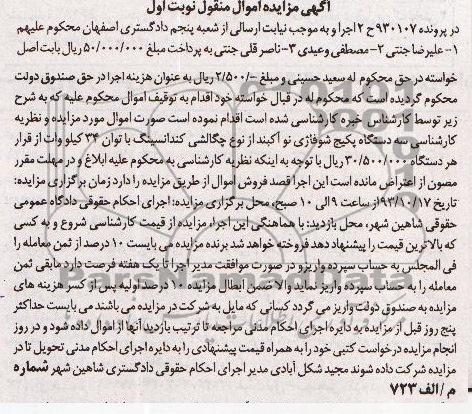 آگهی مزایده اموال منقول نوبت اول
در پرونده ۹۳۰۱۰۷ ح ۲ اجرا و به موجب نیابت ارسالی از شعبه پنجم دادگستری اصفهان محکوم علیهم
۱- علیرضا جنتی ۲- مصطفی وعیدی ۳- ناصر قلی جنتی به پرداخت مبلغ ۵۰/۰۰۰/۰۰۰ ریال بابت اصل
خواسته در حق محکوم له سعید حسینی و مبلغ ۲/۵۰۰/۰۰۰ ریال به عنوان هزینه اجرا در حق صندوق دولت
محکوم گردیده است که محکوم له در قبال خواسته خود اقدام به توقیف اموال محکوم علیه که به شرح
زیر توسط کارشناس خبره کارشناسی شده است اقدام نموده است صورت اموال مورد مزایده و نظریه
کارشناسی سه دستگاه پکیج شوفاژی نو آکبند از نوع چگالشی کندانسینگ با توان ۳۴ کیلو وات از قرار
هر دستگاه ۳۰/۵۰۰/۰۰۰ ریال با توجه به اینکه نظریه کارشناسی به محکوم علیه ابلاغ و در مهلت مقرر
مصون از اعتراض مانده است این اجرا قصد فروش اموال از طریق مزایده را دارد زمان برگزاری مزایده:
تاریخ ۹۳/۱۰/۱۷ از ساعت ۹ الی ۱۰ صبح، محل برگزاری مزایده: اجرای احکام حقوقی دادگاه عمومی
حقوقی شاهین شهر، محل بازدید: با هماهنگی این اجرا، مزایده از قیمت کارشناسی شروع و به کسی
که بالاترین قیمت را پیشنهاد دهد فروخته خواهد شد برنده مزایده می بایست ۱۰ درصد از ثمن معامله را
فی المجلس به حساب سپرده واریز و در صورت موافقت مدیر اجرا تا یک هفته فرصت دارد مابقی ثمن
معامله را به حساب سپرده واریز نماید والا ضمن ابطال مزایده ۱۰ درصد اولیه پس از کسر هزینه های
مزایده به صندوق دولت واریز می گردد کسانی که مایل به شرکت در مزایده می باشند می بایست حداکثر
پنج روز قبل از مزایده به دایره اجرای احکام مدنی مراجعه تا ترتیب بازدید آنها از اموال داده شود و در روز
انجام مزایده درخواست کتبی خود را به همراه قیمت پیشنهادی را به دایره اجرای احکام مدنی تحویل تا در
مزایده شرکت داده شوند مجید شکل آبادی مدیر اجرای احکام حقوقی دادگستری شاهین شهر شماره
م / الف ۷۲۳